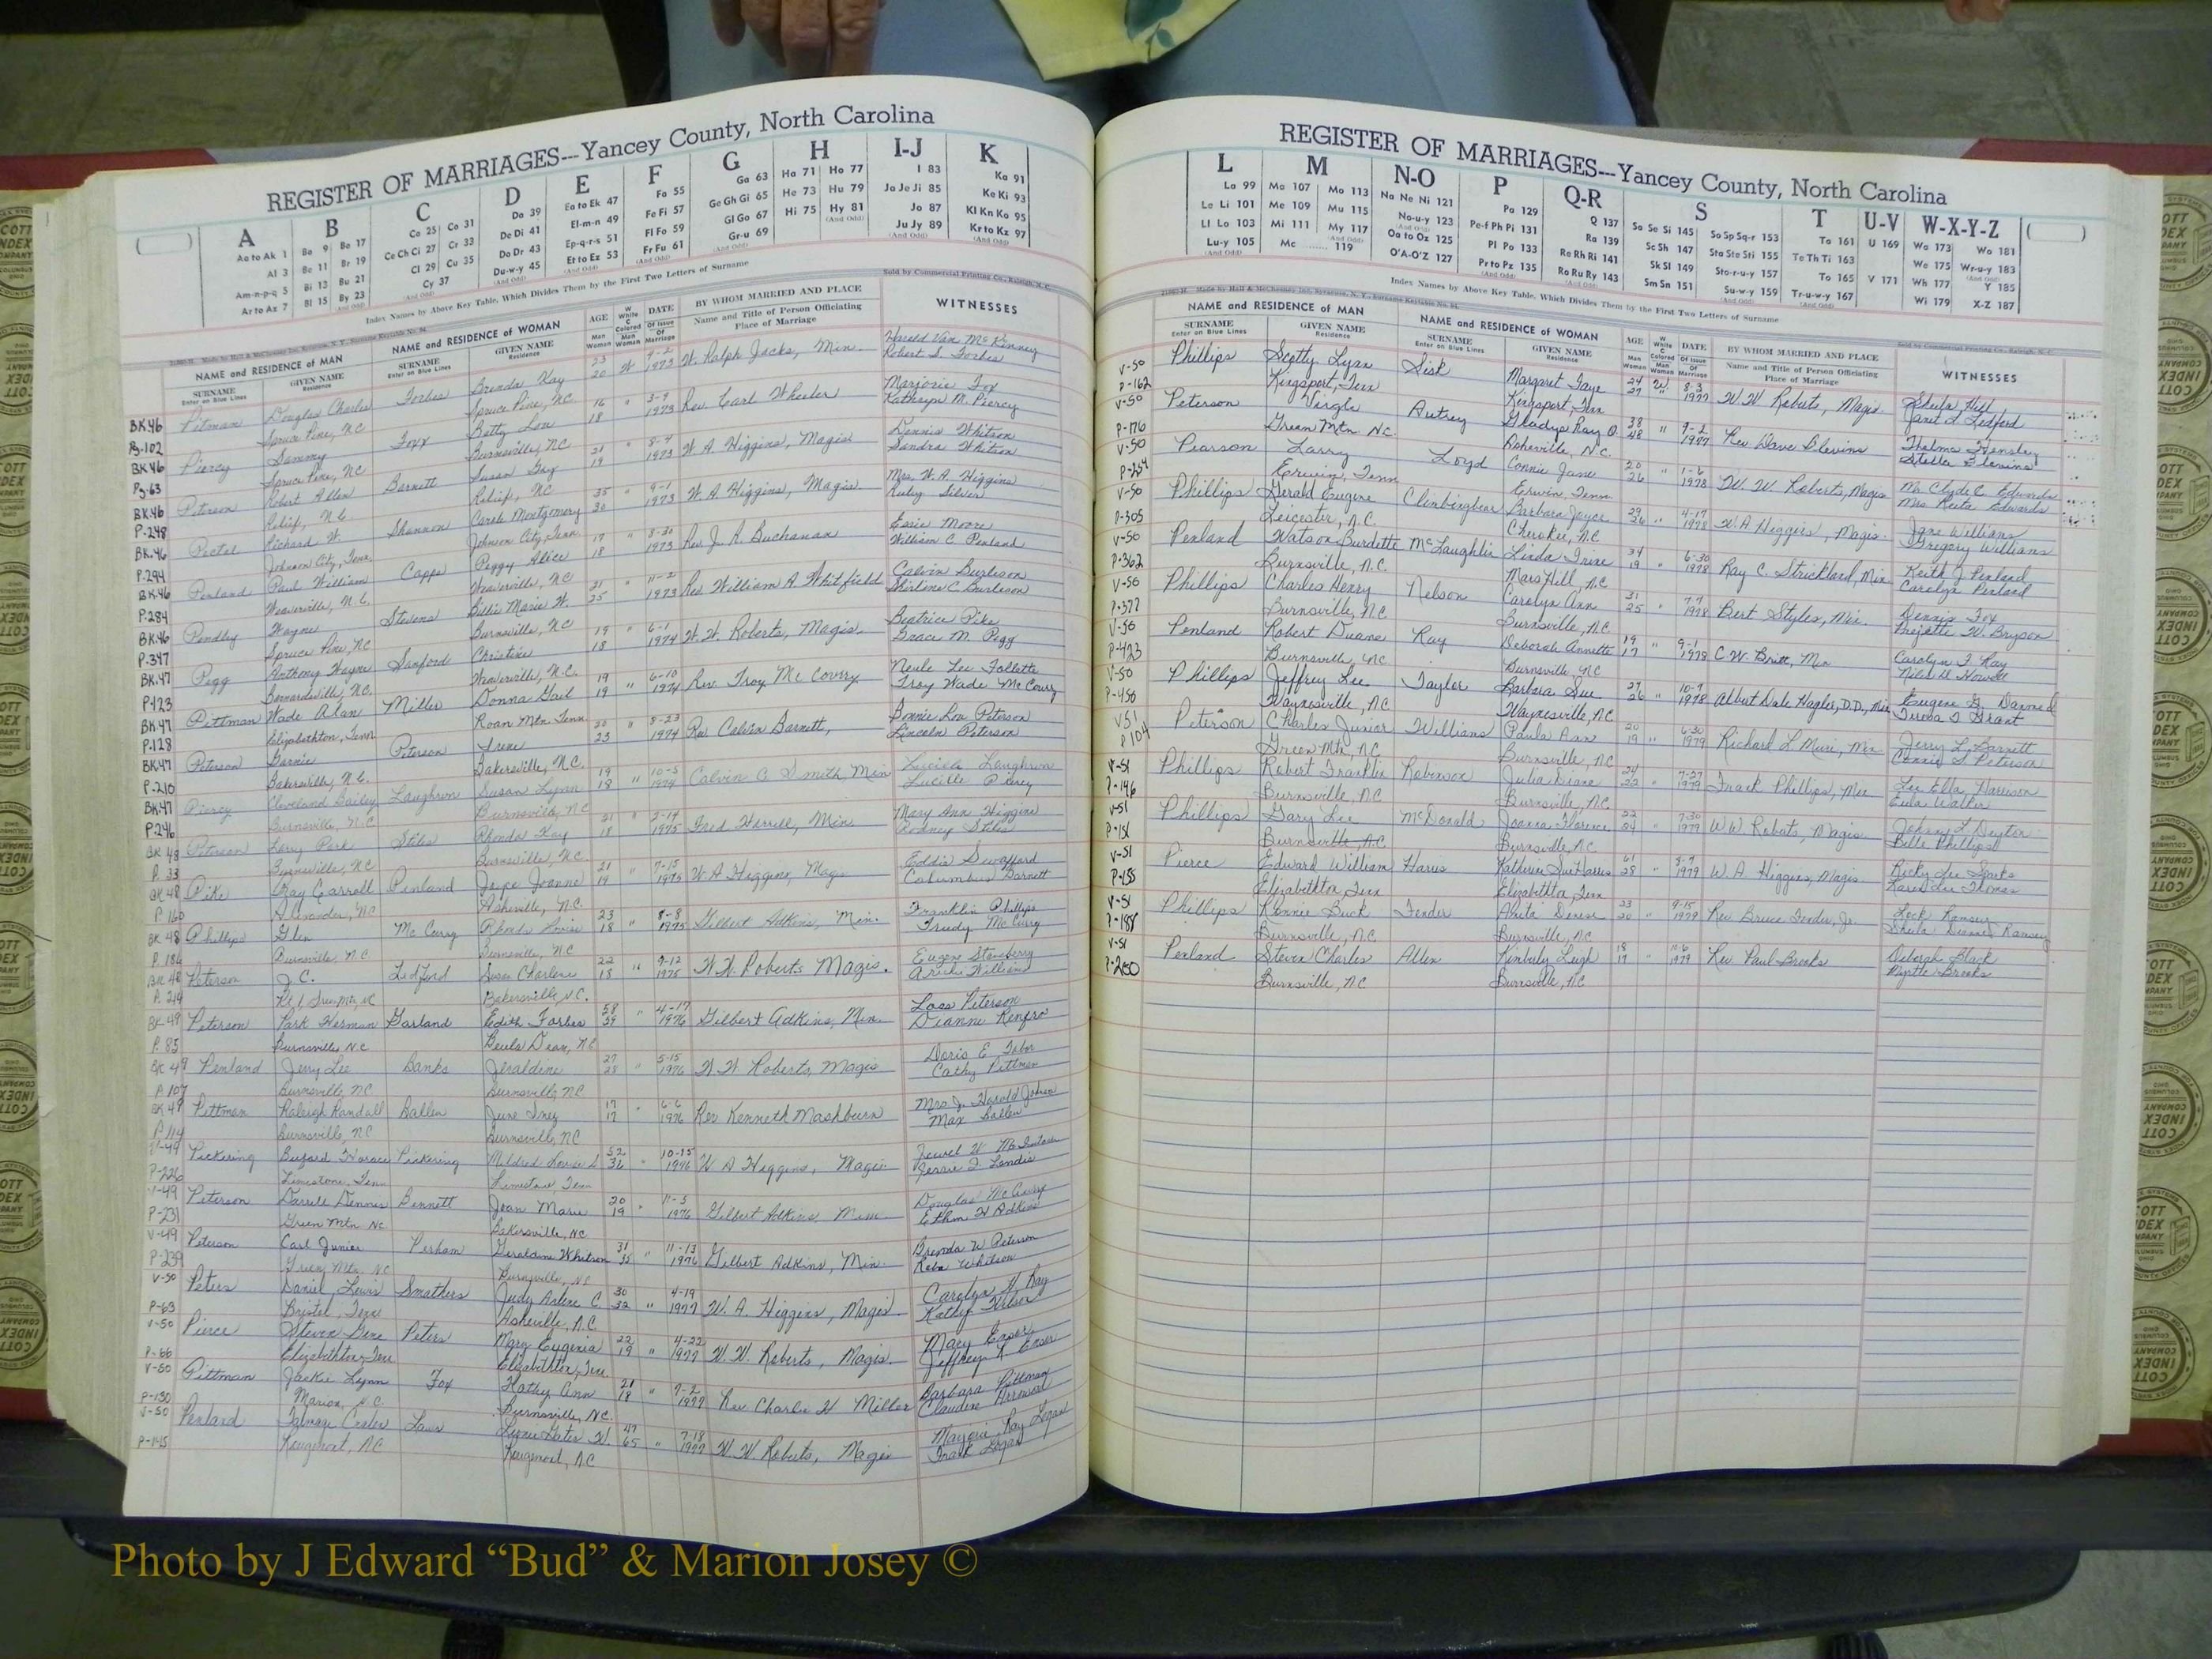 REGISTER OF MARRIAGES---Yancey County, North Carolina
A B C D E F G H I-J K
Aa to Ak 1 Ba 9 Be 17 Ca 25 Co 31 Da 39 Ea to Ek 47 Fa 55 Ga 63 Ha 71 Ho 77 I 83 Ka 91
Al 3 Be 11 Br 19 Ce Ch Ci 27 Cr 33 De Di 41 El-m-n 49 Fe Fi 57 Ge Gh Gi 65 He 73 Hu 79 Ja Je Ji 85 Ke Ki 93
Am-n-p-q 5 Bi 13 Bu 21 Cl 29 Cu 35 Do Dr 43 Ep-q-r-s 51 Fl Fo 59 Gl Go 67 Hi 75 Hy 81 Jo 87 Kl Kn Ko 95
Ar to Az 7 Bl 15 By 23 Cy 37 Du-w-y 45 Et to Ez 53 Fr Fu 61 Gr-u 69 Ju Jy 89 Kr to Kz 97
Index Names by Above Key Table, Which Divides Them by the First Two Letters of Surname
Sold by Commercial Printing Co., Raleigh, N. C.
NAME and RESIDENCE of MAN NAME and RESIDENCE of WOMAN AGE DATE BY WHOM MARRIED AND PLACE WITNESSES
SURNAME GIVEN NAME SURNAME GIVEN NAME Name and Title of Person Officiating
Enter on Blue Lines Residence Enter on Blue Lines Residence Man Woman Place of Marriage
BK 46 Pitman Douglas Charles Forbes Brenda Kay 23 20 W 1973 W. Ralph Jacks, Min. Harold Van McKinney
Pg-102 Spruce Pine, NC Spruce Pine, NC Robert S. Forbes
BK 46 Piercy Sammy Foxx Betty Lou 16 18 " 3-9 1973 Rev. Carl Wheeler Marjorie Fox
Pg-63 Spruce Pine, NC Burnsville, NC Kathryn M. Piercy
BK 46 Peterson Robert Allen Barnett Susan Gay 21 19 " 8-4 1973 W A Higgins, Magis Dennis Whitson
P-248 Relief, N.C. Relief, NC Sandra Whitson
BK.46 Richard W. Shannon Carole Montgomery 35 30 " 9-1 1973 W. A. Higgins, Magis Mrs. W. A. Higgins
P.294 Johnson City, Tenn. Johnson City, Tenn Ruby Silver
BK.46 Penland Paul William Capps Peggy Alice 17 18 " 1973 Rev. J. R. Buchanan Essie Moore
P.284 Weaverville, N.C. Weaverville, NC William C. Penland
BK.46 Pendley Wayne Stevens Billie Marie W. 21 25 " 11-2 1973 Rev William A Whitfield Calvin Burleson
P.347 Spruce Pine, NC Burnsville, NC Shirlene C. Burleson
BK.47 Pegg Anthony Wayne Sanford Christine 19 18 " 6-1 1974 W. W. Roberts, Magis. Beatrice Pike
P.123 NC Weaverville, N.C. Isaac M. Pegg
BK.47 Pittman Wade Alan Miller Donna Gail 19 19 " 6-10 1974 Rev. Troy McCurry Lee Follette
P.128 Elizabethton, Tenn Roan Mtn Tenn Troy Wade McCurry
BK.47 Peterson Peterson Irene 20 23 " 8-23 1974 Rev. Calvin Barnett, Bonnie Lou Peterson
P.210 Bakersville, N.C. Bakersville, N.C. Lincoln Peterson
BK.47 Piercy Cleveland Bailey Laughrun Susan Lynn 19 18 " 10-5 1974 Calvin C Smith Min Lucille Laughrun
P.246 Burnsville, N.C. Burnsville, NC Lucille Piercy
BK 48 Peterson Larry Park Stiles Rhonda Kay 21 18 " 2-14 1975 Fred Harrell, Min. Mary Ann Higgins
P. 33 Burnsville, NC Burnsville, NC Rodney Stiles
BK 48 Pike Ray Carroll Penland Joanne 21 19 " 7-15 1975 W A Higgins, Mag. Eddie Swafford
P 160 Alexander, NC Asheville, N.C. Columbus Barnett
BK 48 Phillips Glen McCurry Rhonda Louise 23 18 " 8-8 1975 Gilbert Adkins, Min. Franklin Phillips
P. 186 Burnsville, NC Burnsville, NC Trudy McCurry
BK 48 Peterson J.C. Ledford Susan Charlene 22 18 " 9-12 1975 W.W. Roberts Magis. Eugene Stansberry
P. 219 Rt. 1 Green Mtn, NC Bakersville N.C. Archie Williams
BK-49 Peterson Park Herman Garland Edith Forbes 58 39 " 4-17 1976 Gilbert Adkins, Min. Loss Peterson
P. 85 Burnsville N.C Beula Dean, NC Dianne Renfro
BK 49 Penland Jerry Lee Banks Jeraldine 27 28 " 5-15 1976 W W Roberts, Magis Doris E Tabor
P. 107 Burnsville, NC Burnsville, NC Cathy Pittman
BK 49 Pittman Raleigh Randall Ballew June Inez 17 17 " 6-6 1976 Rev Kenneth Mashburn Mrs J. Harold
P. 114 Burnsville, NC Burnsville, NC Max Ballew
V-49 Pickering Buford Horace Pickering Mildred Louise 52 36 " 10-15 1976 W A Higgins, Magis. Jewel W.
P-226 Limestone, Tenn Limestone, Tenn Jessie J. Landis
V-49 Peterson Darrell Dennis Bennett Joan Marie 20 19 " 11-5 1976 Gilbert Adkins, Min Douglas McCurry
P-231 Green Mtn NC Bakersville, NC Ethel H Adkins
V-49 Peterson Carl Junior Perham Geraldine Whitson 31 35 " 11-13 1976 Gilbert Adkins, Min. Brenda W Peterson
P-239 Green Mtn. NC Burnsville, NC Whitson
V-50 Peters Daniel Lewis Smathers Judy Arlene C 30 32 " 4-19 1977 W. A. Higgins, Magis. Carolyn H Ray
P-63 Bristol, Tenn Asheville, N.C. Kathy Wilson
V-50 Pierce Steven Gene Peters Mary Eugenia 22 19 " 4-22 1977 W. W. Roberts, Magis. Macy Ensor
P-66 Elizabethton, Tenn Elizabethton, Tenn Jeffrey R Ensor
V-50 Pittman Jackie Lynn Fox Kathy Ann 21 18 " 7-2 1977 Rev. Charlie H Miller Barbara Pittman
P-130 Marion, N.C. Burnsville, NC. Claudine
V-50 Penland Talmage Laws Lizzie W. 47 65 " 7-18 1977 W. W. Roberts, Magis Marjorie Ray Logan
P-145 Rougemont, NC Rougemont, NC Frank Logan
REGISTER OF MARRIAGES---Yancey County, North Carolina
L M N-O P Q-R S T U-V W-X-Y-Z
La 99 Ma 107 Mo 113 Na Ne Ni 121 Pa 129 Q 137 Sa Se Si 145 So Sp Sq-r 153 Ta 161 U 169 Wa 173 Wo 181
Le Li 101 Me 109 Mu 115 No-u-y 123 Pe-f Ph Pi 131 Ra 139 Sc Sh 147 Sta Ste Sti 155 Te Th Ti 163 We 175 Wr-u-y 183
Ll Lo 103 Mi 111 My 117 Oa to Oz 125 Pl Po 133 Re Rh Ri 141 Sk Sl 149 Sto-r-u-y 157 To 165 V 171 Wh 177 Y 185
Lu-y 105 Mc 119 O'A-O'Z 127 Pr to Pz 135 Ro Ru Ry 143 Sm Sn 151 Su-w-y 159 Tr-u-w-y 167 Wi 179 X-Z 187
Index Names by Above Key Table, Which Divides Them by the First Two Letters of Surname
NAME and RESIDENCE of MAN NAME and RESIDENCE of WOMAN AGE DATE BY WHOM MARRIED AND PLACE WITNESSES
SURNAME GIVEN NAME SURNAME GIVEN NAME Name and Title of Person Officiating
Enter on Blue Lines Residence Enter on Blue Lines Residence Man Woman Place of Marriage
V-50 Phillips Scotty Lynn Sisk Margaret Faye 24 27 W. 8-3 1977 W W Roberts, Magis. Sheila Hill
P-162 Kingsport, Tenn Kingsport, Tenn Janet L Ledford
V-50 Peterson Virgle Autrey Gladys Kay O. 38 48 " 9-2 1977 Rev Dave Blevins Thelma Hensley
P-176 Green Mtn. NC. Asheville, N.C. Stella Blevins
V-50 Pearson Larry Loyd Connie Jane 20 26 " 1-6 1978 W. W. Roberts, Magis Mr. Clyde C Edwards
P-254 Erwin, Tenn Erwin Tenn Mrs Reita Edwards
V-50 Phillips Gerald Eugene Climbingbear Barbara Joyce 29 26 " 4-17 1978 W A Higgins, Magis. Jane Williams
P-305 Leicester, N.C. Cherokee, N.C. Gregory Williams
V-50 Penland Watson Burdette McLaughlin Linda Irine 34 19 " 6-30 1978 Ray C. Strickland, Min Keith J Penland
P-362 Burnsville, N.C. Mars Hill, N.C. Carolyn Penland
V-50 Phillips Charles Henry Nelson Carolyn Ann 31 25 " 7-7 1978 Bert Styles, Min. Dennis Fox
P-377 Burnsville, NC Burnsville, N.C. W. Bryson
V-50 Penland Robert Duane Ray Deborah Annette 19 17 " 9-1 1978 C W. Britt, Min Carolyn F Ray
P-423 Burnsville, NC Burnsville, NC Howell
V-50 Phillips Jeffrey Lee Taylor Barbara Sue 27 26 " 10-7 1978 Albert Dale Hagler, D.D., Min Eugene G.
P-458 Waynesville, NC Waynesville, NC Teresa T Grant
V51 Peterson Charles Junior Williams Paula Ann 20 19 " 6-30 1979 Richard L Muri, Min Jerry L. Barnett
P 104 Green Mtn, NC Burnsville, NC Connie S. Peterson
V-51 Phillips Robert Franklin Robinson Julia Diane 24 22 " 7-27 1979 Frank Phillips, Min Lee Ella Harrison
P-146 Burnsville, N.C. Burnsville, N.C. Eula Walter
V-51 Phillips Gary Lee McDonald Joanna Florence 22 24 " 7-30 1979 W W. Roberts, Magis. Johnny L Deyton
P-151 Burnsville, N.C Burnsville, N.C Belle Phillips
V-51 Pierce Edward William Harris Katherine Sue Harris 61 28 " 8-7 1979 W A. Higgins, Magis. Ricky Lee Sparks
P-155 Elizabethton, Tenn Elizabethton, Tenn Karen Lee Thomas
V-51 Phillips Ronnie Buck Fender Anita Denese 23 20 " 9-15 1979 Rev. Bruce Fender, Jr. Lock Ramsey
P-188 Burnsville, N.C. Burnsville, N.C. Sheila Ramsey
V-51 Penland Steven Charles Allen Kimberly Leigh 18 17 " 10-6 1979 Rev. Paul Brooks Deborah Black
P-200 Burnsville, NC Burnsville, NC Myrtle Brooks
Photo by J Edward “Bud” & Marion Josey ©